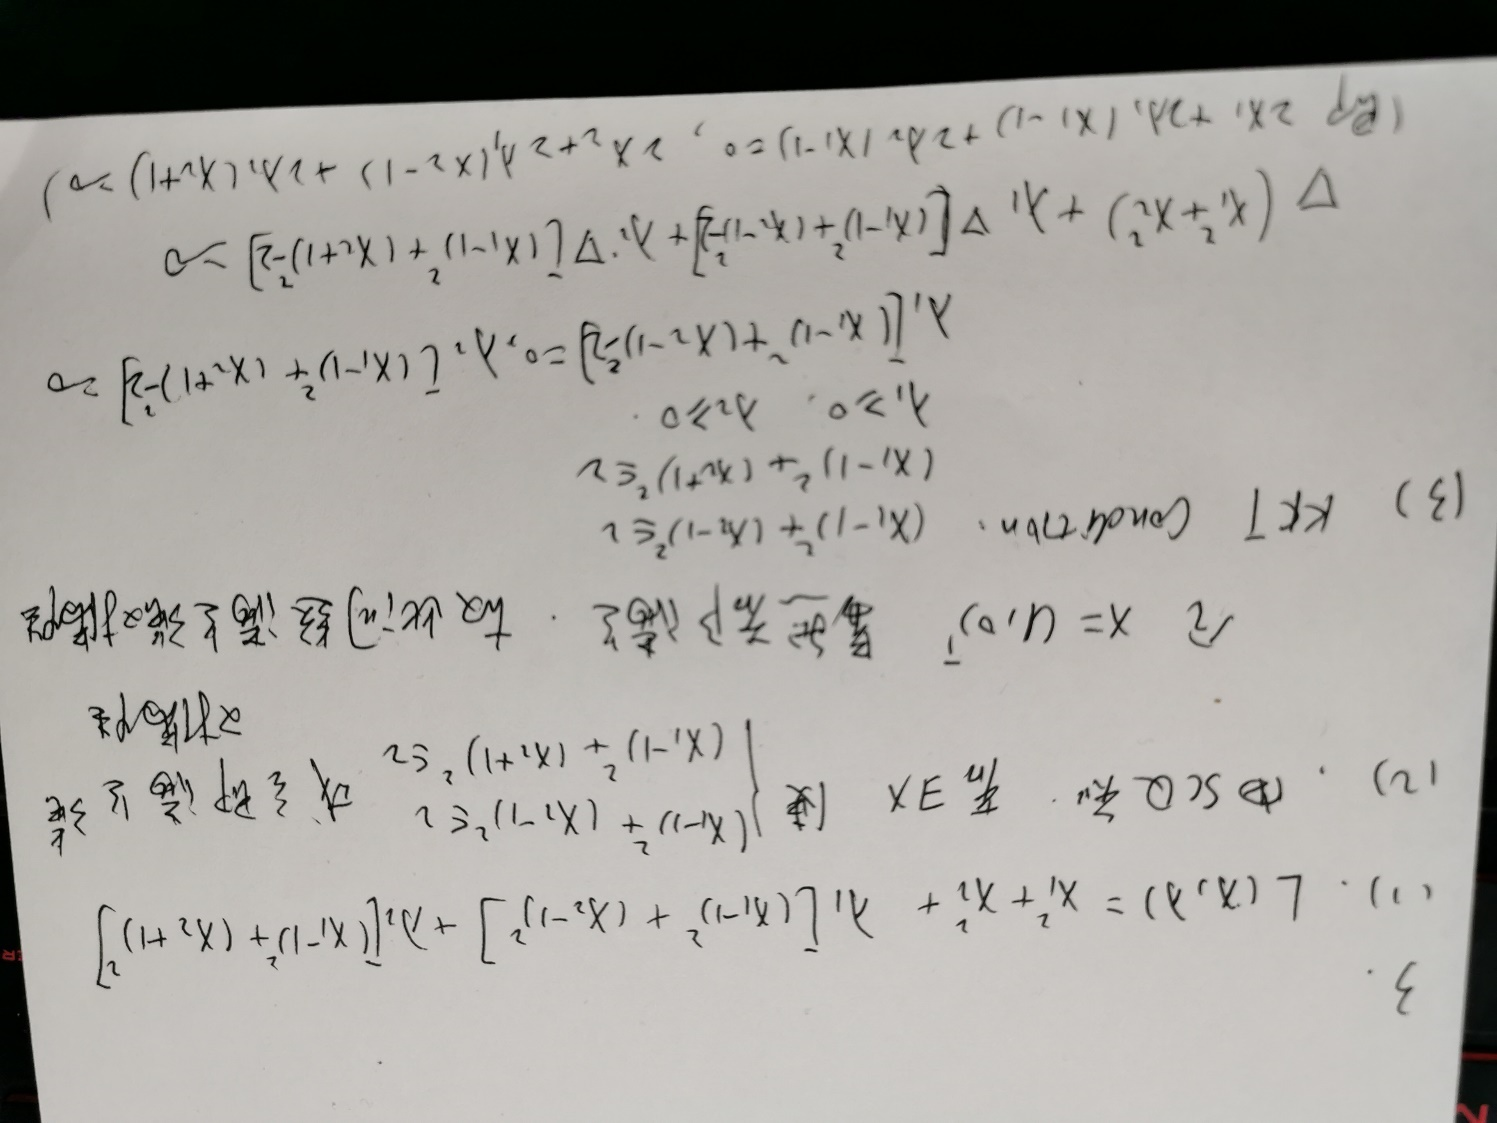 3.
(1). L(x,λ) = x₁²+x₂² + λ₁[(x₁-1)² + (x₂-1)²] + λ₂[(x₁-1)² + (x₂+1)²]
(2). 由SCQ知. 若∃x 使 { (x₁-1)² + (x₂-1)² ≤ 2 成立即满足强
(x₁-1)² + (x₂+1)² ≤ 2 对偶性
x = (1,0)ᵀ 满足. 故此问题满足强对偶性
(3) KKT Condition. (x₁-1)² + (x₂-1)² ≤ 2
(x₁-1)² + (x₂+1)² ≤ 2
λ₁ ≥ 0. λ₂ ≥ 0.
λ₁[(x₁-1)² + (x₂-1)²-2] = 0, λ₂[(x₁-1)² + (x₂+1)²-2] = 0
∇(x₁²+x₂²) + λ₁∇[(x₁-1)²+(x₂-1)²-2] + λ₂·∇[(x₁-1)² + (x₂+1)²-2] = 0
(即 2x₁ + 2λ₁(x₁-1) + 2λ₂(x₁-1) = 0, 2x₂ + 2λ₁(x₂-1) + 2λ₂(x₂+1) = 0)